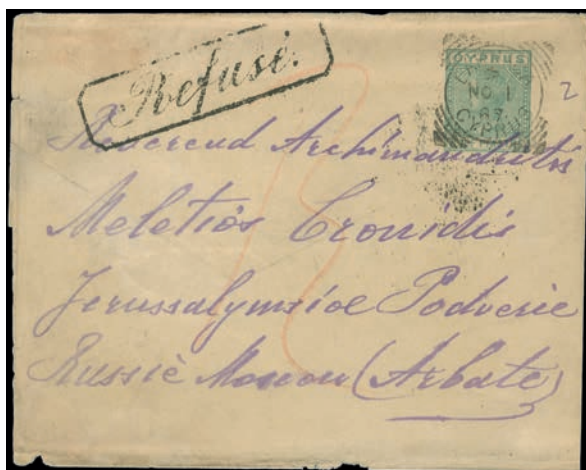 Refusé.
CYPRUS
NO 1
CYPRUS
2
Reverend Archimandritis
Meletios Cronidis
Jerussalymsioe Podverie
Russiè Moscou (Arbate)